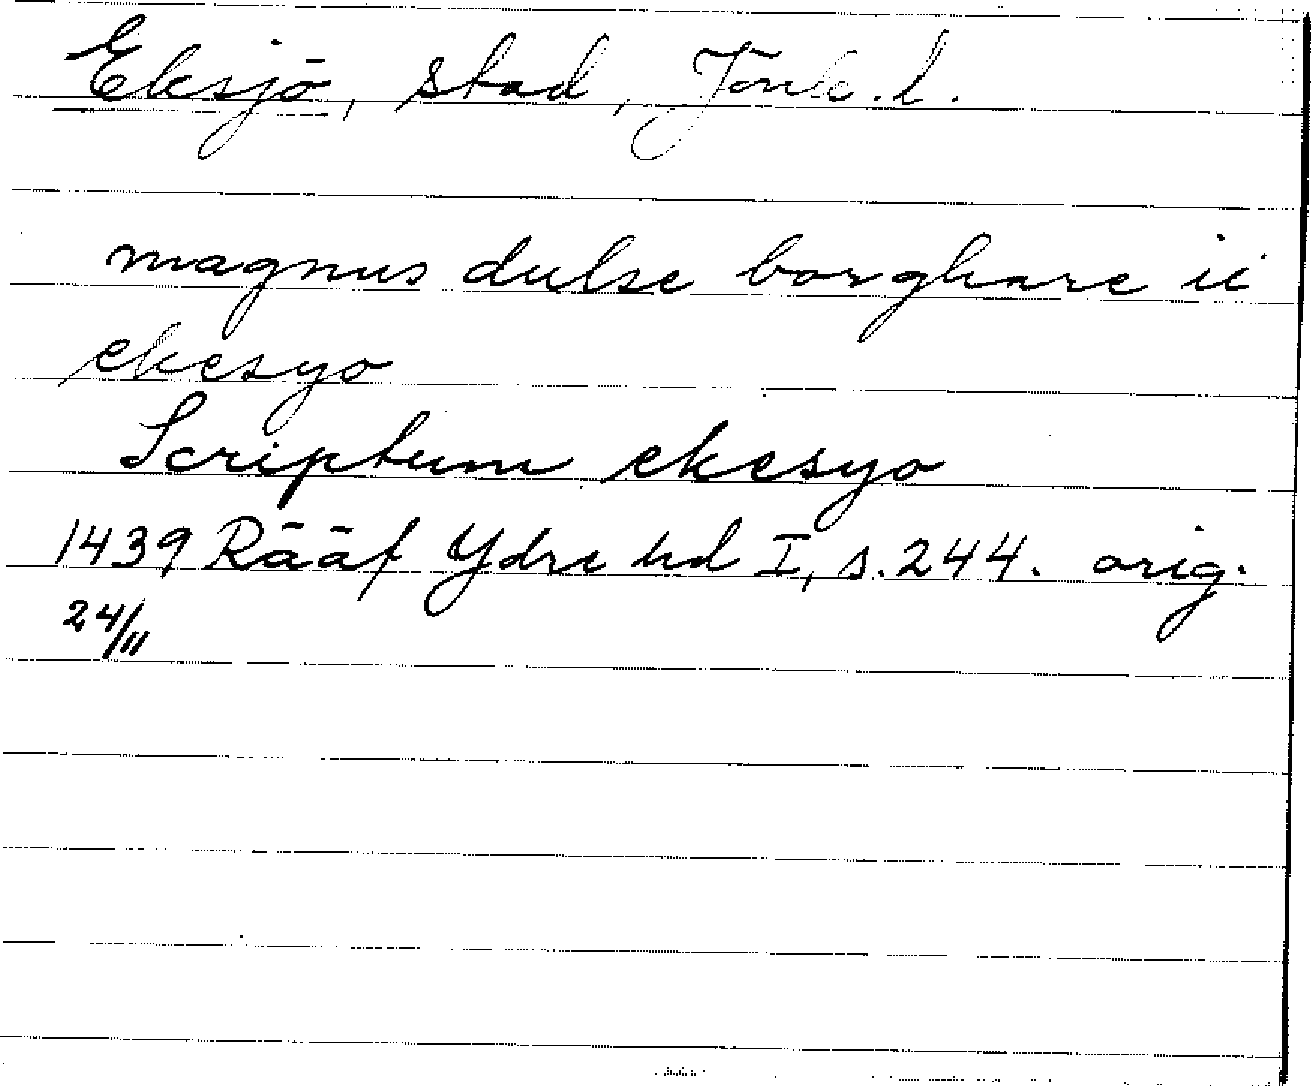 Eksjö, stad, Jönk. l.
magnus dulse borghare ii
ekesyo
Scriptum ekesyo
1439 Rääf Ydre hd I, s. 244. orig.
24/11